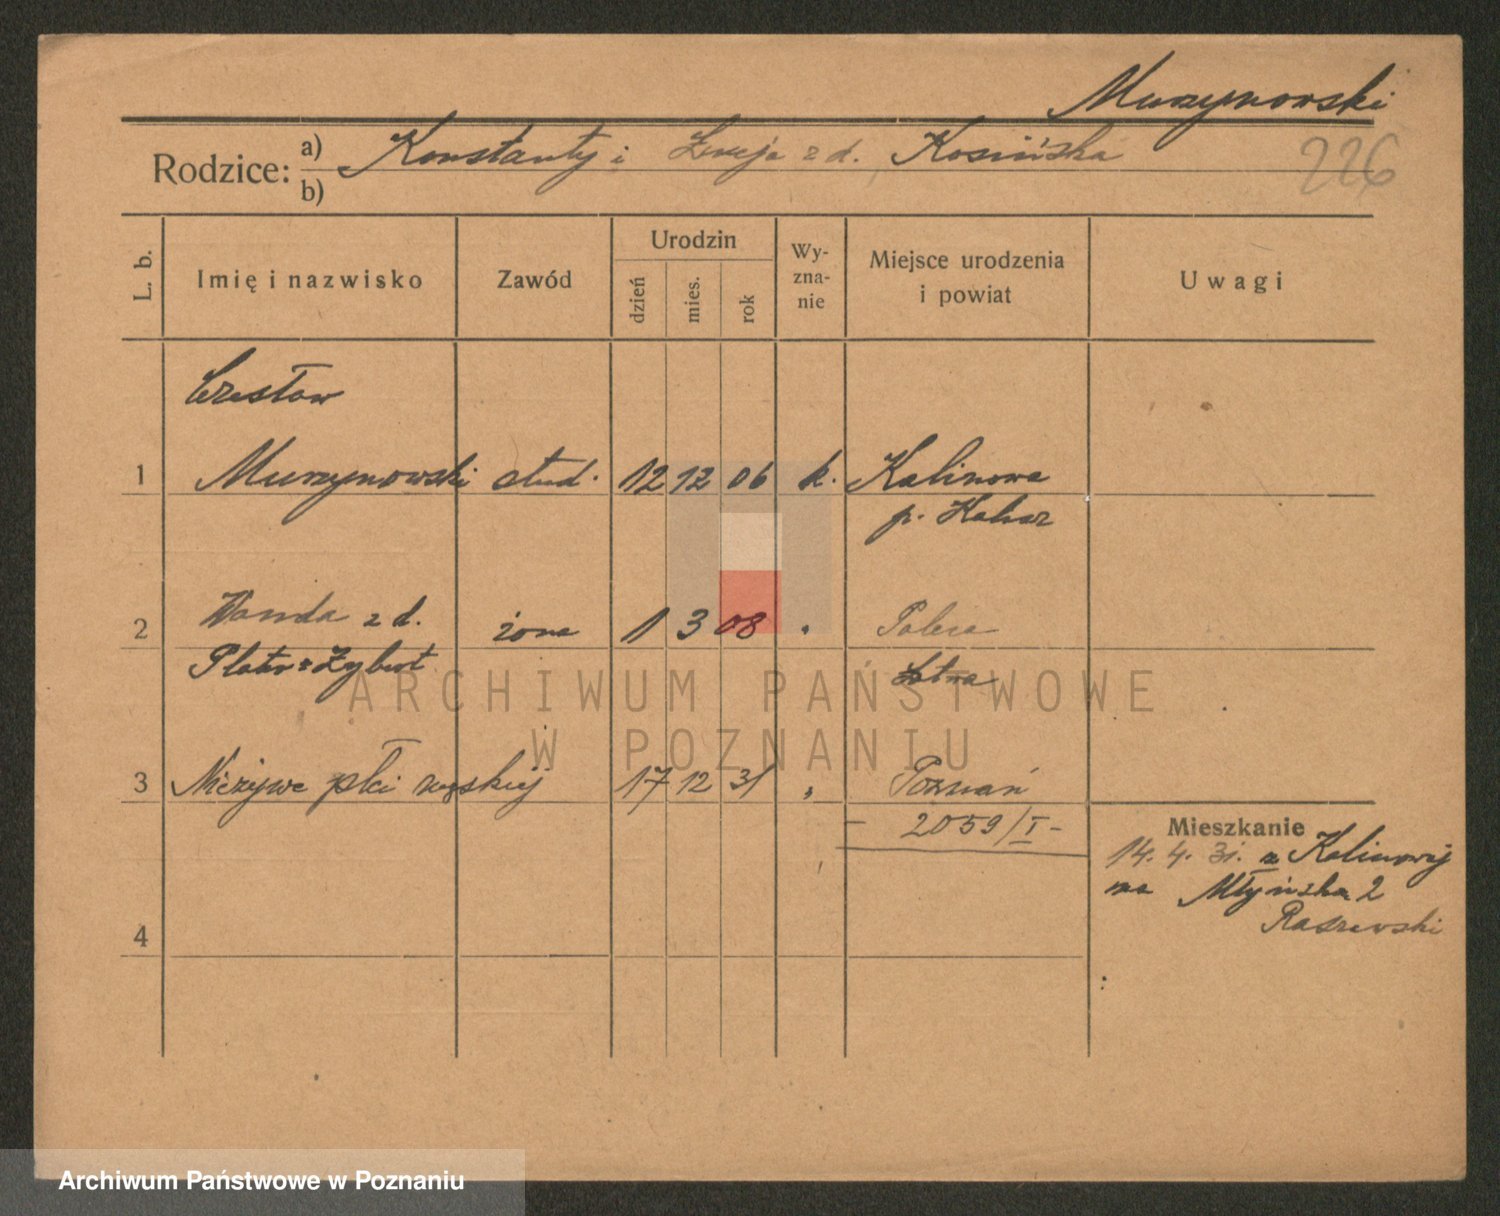 Murzynowski
Rodzice: a) Konstanty i z d. Kosińska
b)
226
L. b.
Imię i nazwisko
Zawód
Urodzin
dzień
mies.
rok
Wy-
zna-
nie
Miejsce urodzenia
i powiat
Uwagi
Czesław
1 Murzynowski stud. 12 12 06 k. Kalinowa
p. Kalisz
Wanda z d.
2 żona 1 3 08 "
Plater-Zyberk
Łotwa
3 Nieżywe płci męskiej 17 12 31 " Poznań
- 2059/I -
Mieszkanie
14. 4. 31. z Kalinowej
na Młyńska 2
Raszewski
4
ARCHIWUM PAŃSTWOWE
W POZNANIU
Archiwum Państwowe w Poznaniu